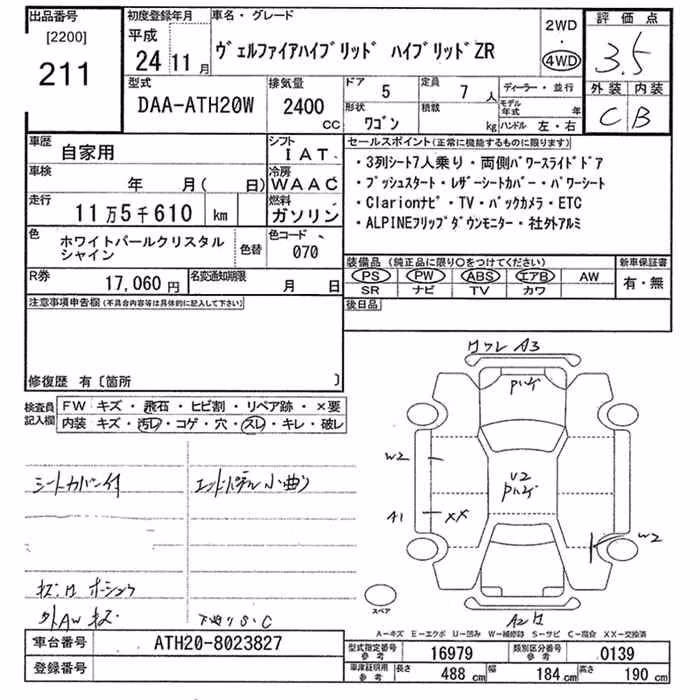 出品番号
[2200]
211
初度登録年月
平成
24 11月
車名・グレード
ヴェルファイアハイブリッド ハイブリッドZR
2WD
・
4WD
評価点
3.5
外装 内装
C B
型式
DAA-ATH20W
排気量
2400
CC
ドア
5
定員
7人
形状
ワゴン
積載
kg
ディーラー・並行
モデル年式 年
ハンドル 左・右
車歴
自家用
シフト
IAT
車検
年 月( 日)
冷房
WAAC
走行
11万5千610 km
燃料
ガソリン
色
ホワイトパールクリスタル
シャイン
色替
色コード
070
R券
17,060円
名変通知期限
月 日
セールスポイント(正常に機能するものに限ります)
・3列シート7人乗り・両側パワースライドドア
・プッシュスタート・レザーシートカバー・パワーシート
・Clarionナビ・TV・バックカメラ・ETC
・ALPINEフリップダウンモニター・社外アルミ
装備品(純正品に限り○をつけてください)
新車保証書
PS PW ABS エアB AW
SR ナビ TV カワ
有・無
後日品
注意事項申告欄(不具合内容等は具体的に記入して下さい)
修復歴 有〔箇所 〕
検査員
記入欄
FW キズ・飛石・ヒビ割・リペア跡・×要
内装 キズ・汚レ・コゲ・穴・スレ・キレ・破レ
ワレ A3
シートカバー付
エンドパネル小曲り
W2
U2
A1
XX
W2
外AWキズ
下廻りS.C
スペア
A-キズ E-エクボ U-凹み W-補修跡 S-サビ C-腐食 XX-交換済
車台番号
ATH20-8023827
登録番号
型式指定番号
参考
16979
類別区分番号
参考
0139
車庫証明用
参考
長さ
488 cm
幅
184 cm
高さ
190 cm